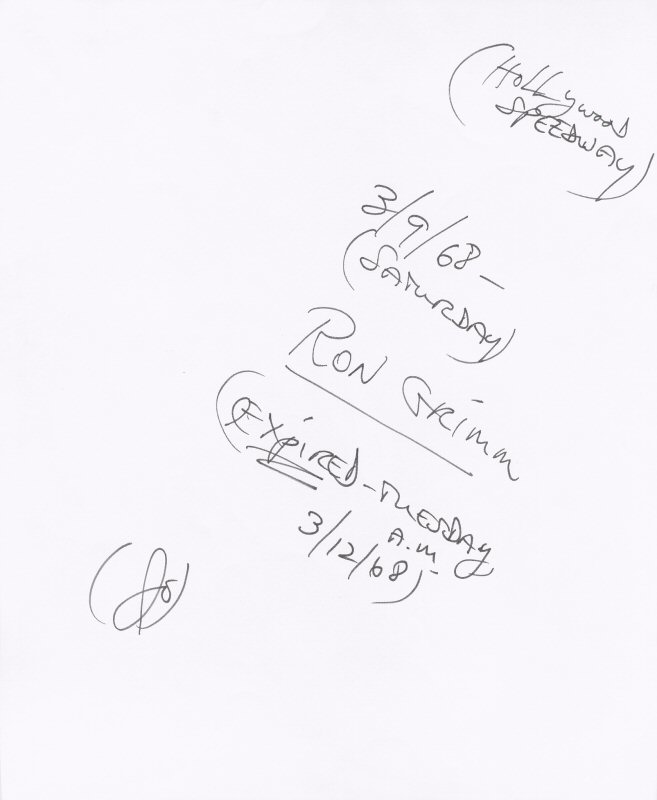 (Hollywood
SPEEDWAY)
3/9/68 -
(SATURDAY)
RON GRimm
(EXpiRED - TUESDAY
A.M -
3/12/68)